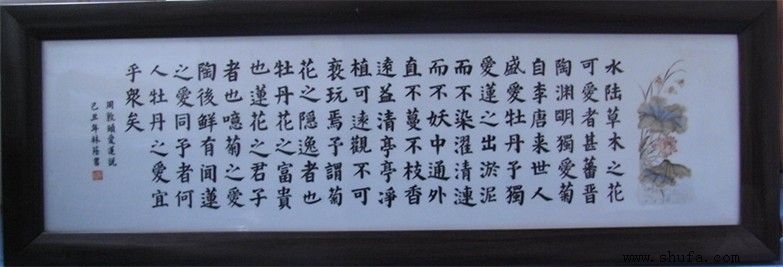 水陸草木之花
可愛者甚蕃晋
陶渊明獨愛菊
自李唐来世人
盛愛牡丹予獨
愛蓮之出淤泥
而不染濯清漣
而不妖中通外
直不蔓不枝香
遠益清亭亭凈
植可遠觀不可
亵玩焉予謂菊
花之隠逸者也
牡丹花之富貴
也蓮花之君子
者也噫菊之愛
陶後鲜有闻蓮
之愛同予者何
人牡丹之愛宜
乎衆矣
周敦頤愛蓮説
己丑年林書
www.shufa.com